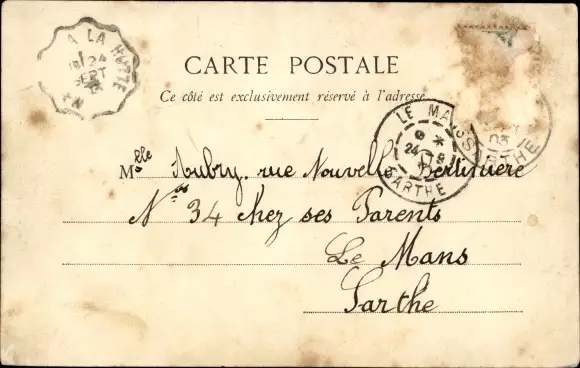 A LA HUTTE
24
SEPT
CARTE POSTALE
Ce côté est exclusivement réservé à l'adresse
LE MANS
24
SARTHE
03
SARTHE
Mlle Aubry, rue Nouvelle Bertinière
Nos 34 chez ses Parents
Le Mans
Sarthe